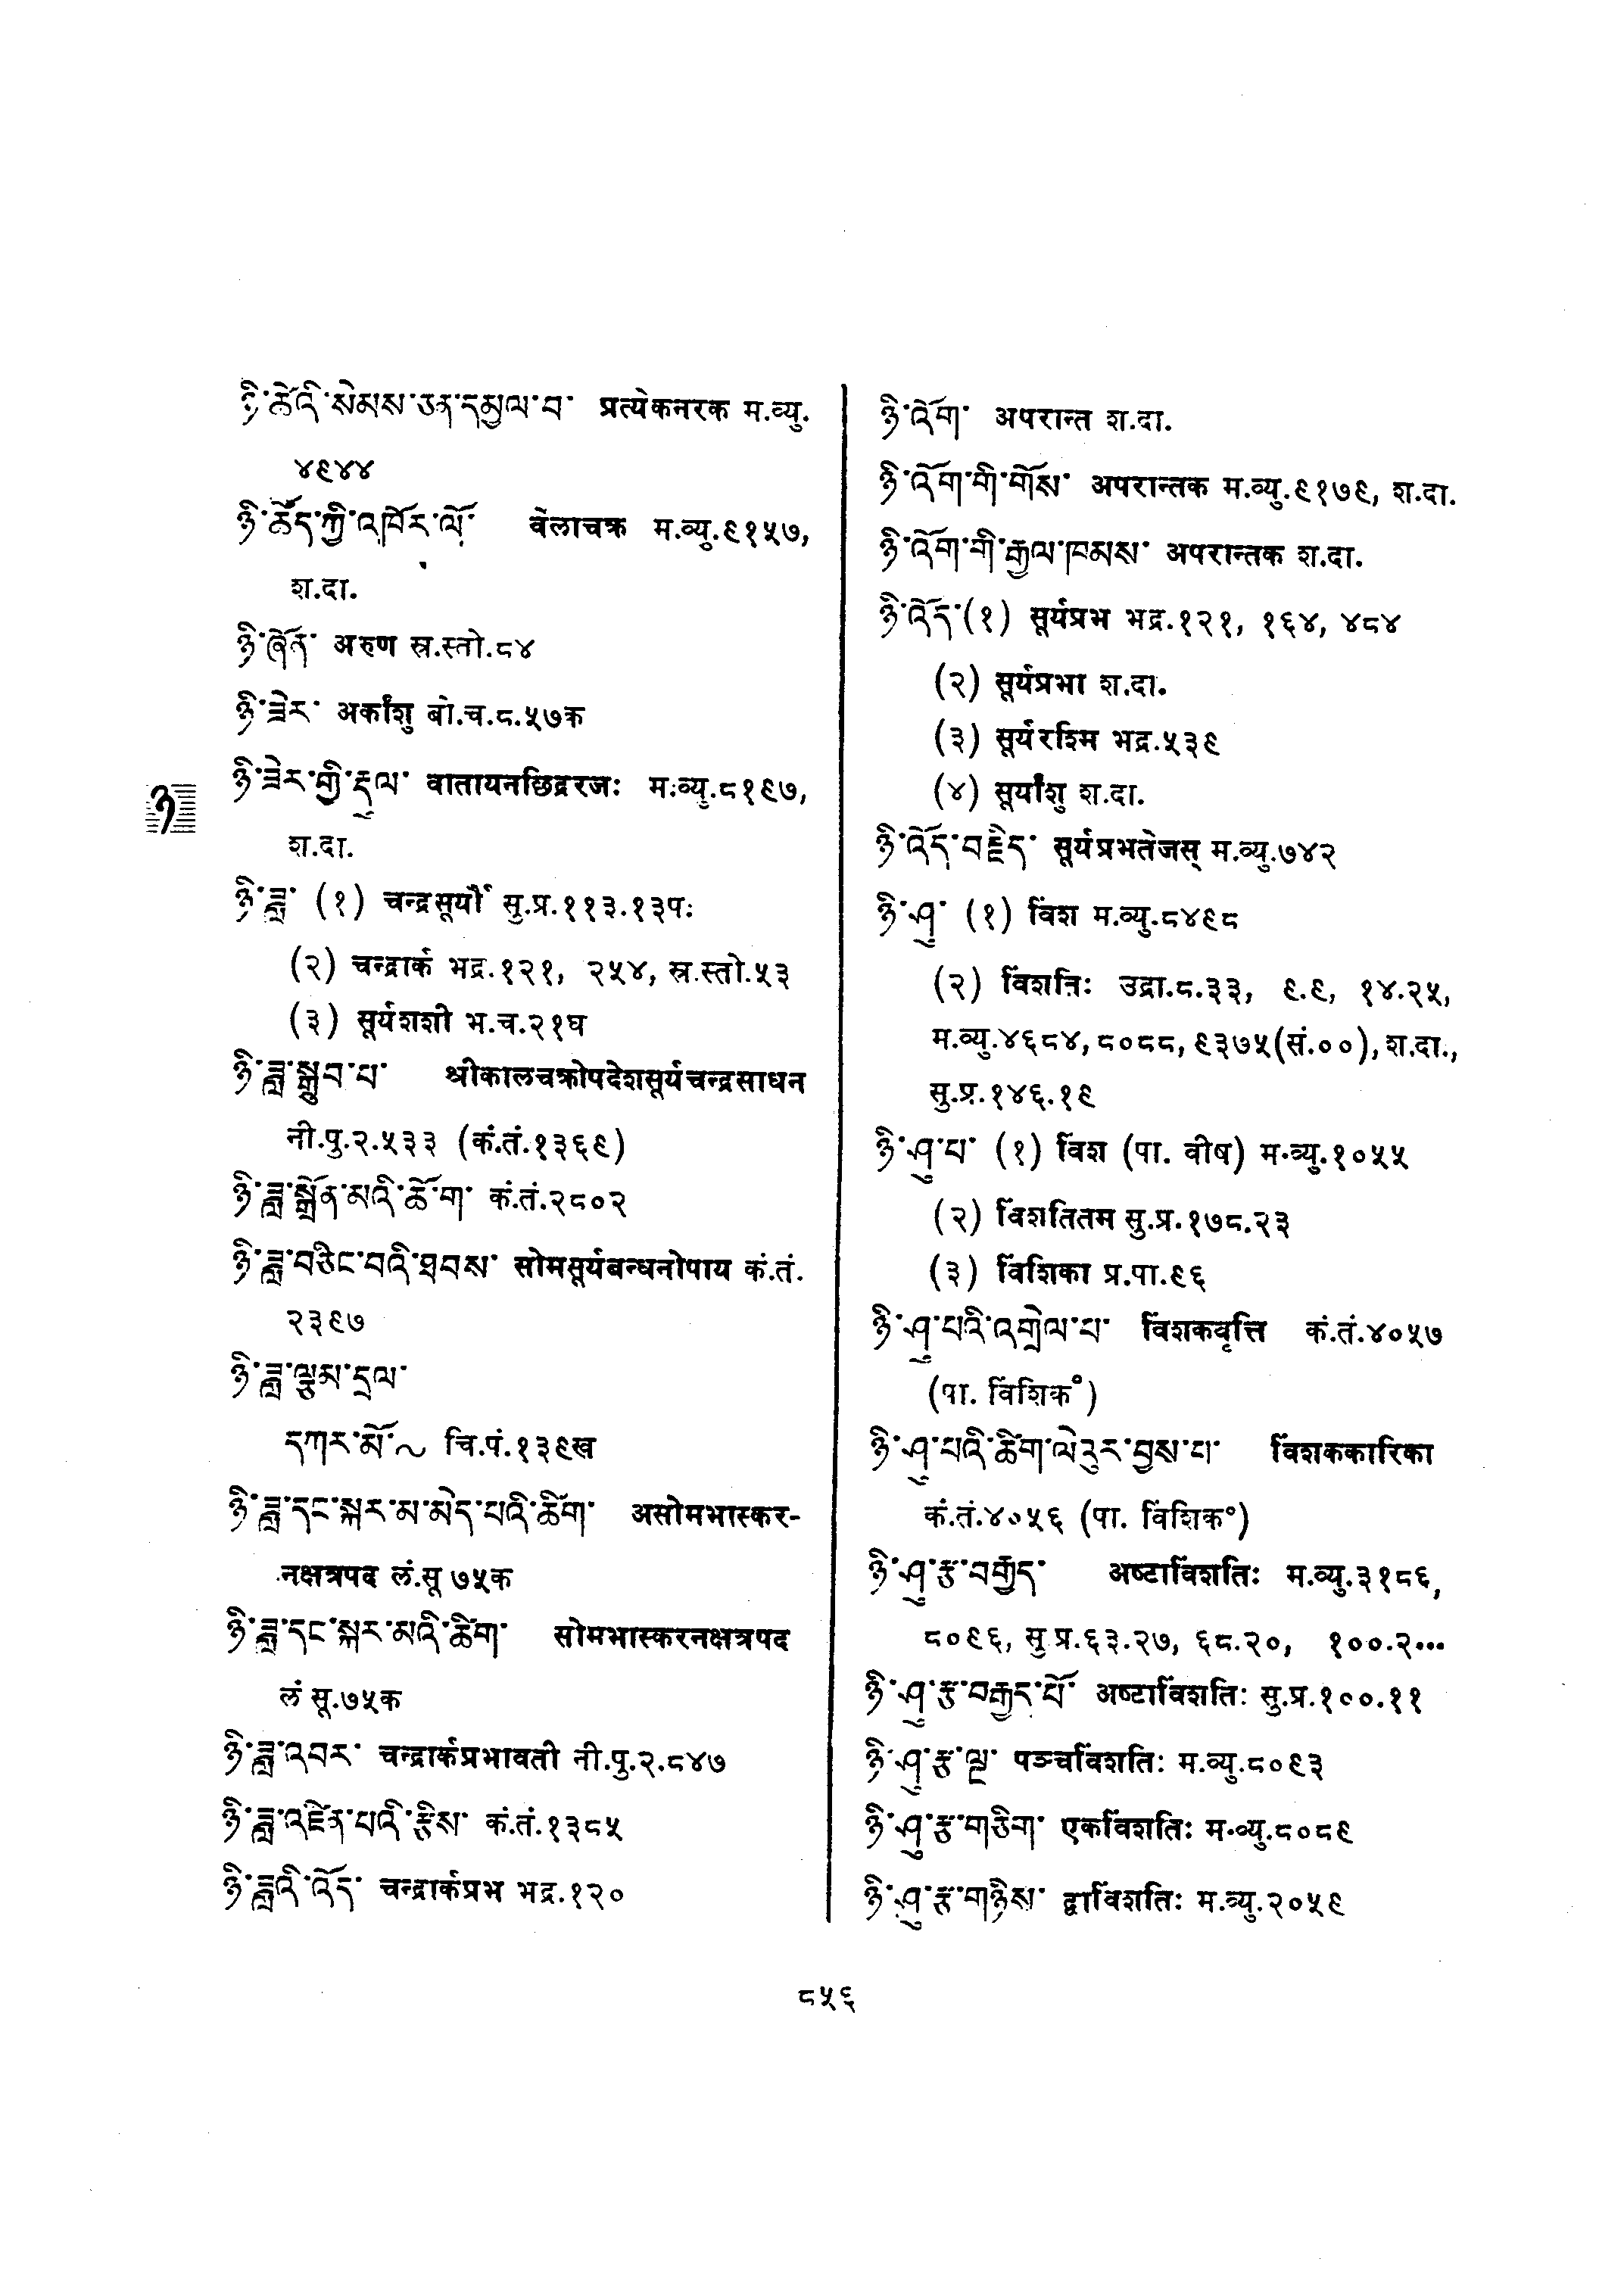 ཉི་ཚེའི་སེམས་ཅན་དམྱལ་བ་ प्रत्येकनरक म.व्यु.
४९४४
ཉི་ཚོད་ཀྱི་འཁོར་ལོ་ वेलाचक्र म.व्यु.९१५७,
श.दा.
ཉི་ཞོན་ अरुण स्र.स्तो.८४
ཉི་ཟེར་ अर्कांशु बो.च.८.५७क
ཉི་ཟེར་གྱི་རྡུལ་ वातायनछिद्ररजः म.व्यु.८१९७,
श.दा.
ཉི་ཟླ་ (१) चन्द्रसूर्यौ सु.प्र.११३.१३पः
(२) चन्द्रार्क भद्र.१२१, २५४, स्र.स्तो.५३
(३) सूर्यशशी भ.च.२१घ
ཉི་ཟླ་སྒྲུབ་པ་ श्रीकालचक्रोपदेशसूर्यचन्द्रसाधन
नी.पु.२.५३३ (कं.तं.१३६९)
ཉི་ཟླ་སྒྲོན་མའི་ཆོག་ कं.तं.२८०२
ཉི་ཟླ་བཅིང་བའི་ཐབས་ सोमसूर्यबन्धनोपाय कं.तं.
२३९७
ཉི་ཟླ་ལྕམ་དྲལ་
དཀར་མོ་~ चि.पं.१३९ख
ཉི་ཟླ་དང་སྐར་མ་མེད་པའི་ཚིག་ असोमभास्कर-
नक्षत्रपद लं.सू ७५क
ཉི་ཟླ་དང་སྐར་མའི་ཚིག་ सोमभास्करनक्षत्रपद
लं सू.७५क
ཉི་ཟླ་འབར་ चन्द्रार्कप्रभावती नी.पु.२.८४७
ཉི་ཟླ་འཛིན་པའི་རྩིས་ कं.तं.१३८५
ཉི་ཟླའི་འོད་ चन्द्रार्कप्रभ भद्र.१२०
ཉ
ཉི་འོག་ अपरान्त श.दा.
ཉི་འོག་གི་གོས་ अपरान्तक म.व्यु.९१७९, श.दा.
ཉི་འོག་གི་རྒྱལ་ཁམས་ अपरान्तक श.दा.
ཉི་འོད་(१) सूर्यप्रभ भद्र.१२१, १६४, ४८४
(२) सूर्यप्रभा श.दा.
(३) सूर्यरश्मि भद्र.५३९
(४) सूर्यांशु श.दा.
ཉི་འོད་བརྗིད་ सूर्यप्रभतेजस् म.व्यु.७४२
ཉི་ཤུ་ (१) विंश म.व्यु.८४९८
(२) विंशतिः उद्रा.८.३३, ९.९, १४.२५,
म.व्यु.४६८४, ८०८८, ९३७५(सं.००), श.दा.,
सु.प्र.१४६.१९
ཉི་ཤུ་པ་ (१) विंश (पा. वीष) म.व्यु.१०५५
(२) विंशतितम सु.प्र.१७८.२३
(३) विंशिका प्र.पा.९६
ཉི་ཤུ་པའི་འགྲེལ་པ་ विंशकवृत्ति कं.तं.४०५७
(पा. विंशिक°)
ཉི་ཤུ་པའི་ཚིག་ལེཨུར་བྱས་པ་ विंशककारिका
कं.तं.४०५६ (पा. विंशिक°)
ཉི་ཤུ་རྩ་བགྱོད་ अष्टाविंशतिः म.व्यु.३१८६,
८०९६, सु.प्र.६३.२७, ६८.२०, १००.२...
ཉི་ཤུ་རྩ་བརྒྱད་པོ་ अष्टाविंशतिः सु.प्र.१००.११
ཉི་ཤུ་རྩ་ལྔ་ पञ्चविंशतिः म.व्यु.८०९३
ཉི་ཤུ་རྩ་གཅིག་ एकविंशतिः म.व्यु.८०८९
ཉི་ཤུ་རྩ་གཉིས་ द्वाविंशतिः म.व्यु.२०५९
८५६